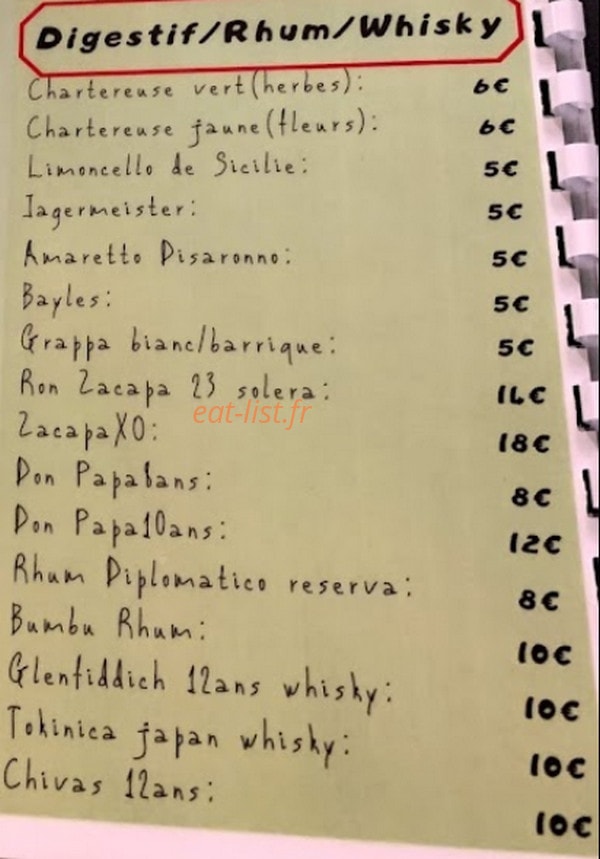 Digestif/Rhum/Whisky
Chartereuse vert(herbes): 6€
Chartereuse jaune(fleurs): 6€
Limoncello de Sicilie: 5€
Iagermeister: 5€
Amaretto Disaronno: 5€
Bayles: 5€
Grappa bianc/barrique: 5€
Ron Zacapa 23 solera: 14€
eat-list.fr
ZacapaXO: 18€
Don Papa8ans: 8€
Don Papa10ans: 12€
Rhum Diplomatico reserva: 8€
Bumbu Rhum: 10€
Glenfiddich 12ans whisky: 10€
Tokinica japan whisky: 10€
Chivas 12ans: 10€